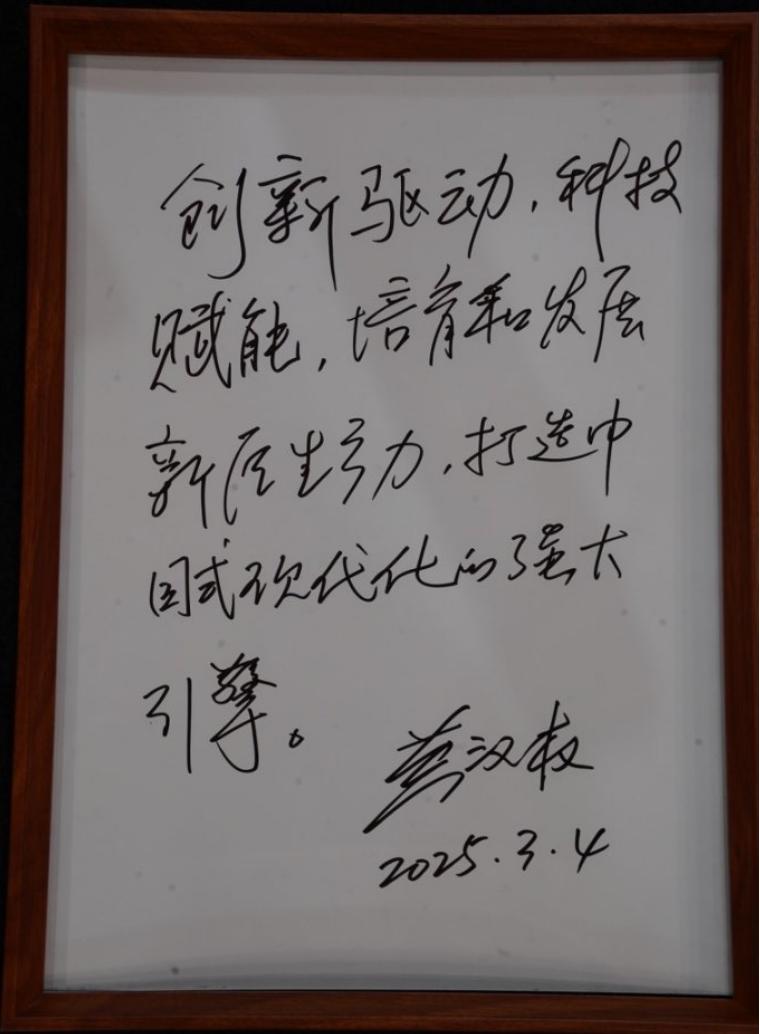 创新驱动，科技
赋能，培育和发展
新质生产力，打造中
国式现代化的强大
引擎。
2025.3.4